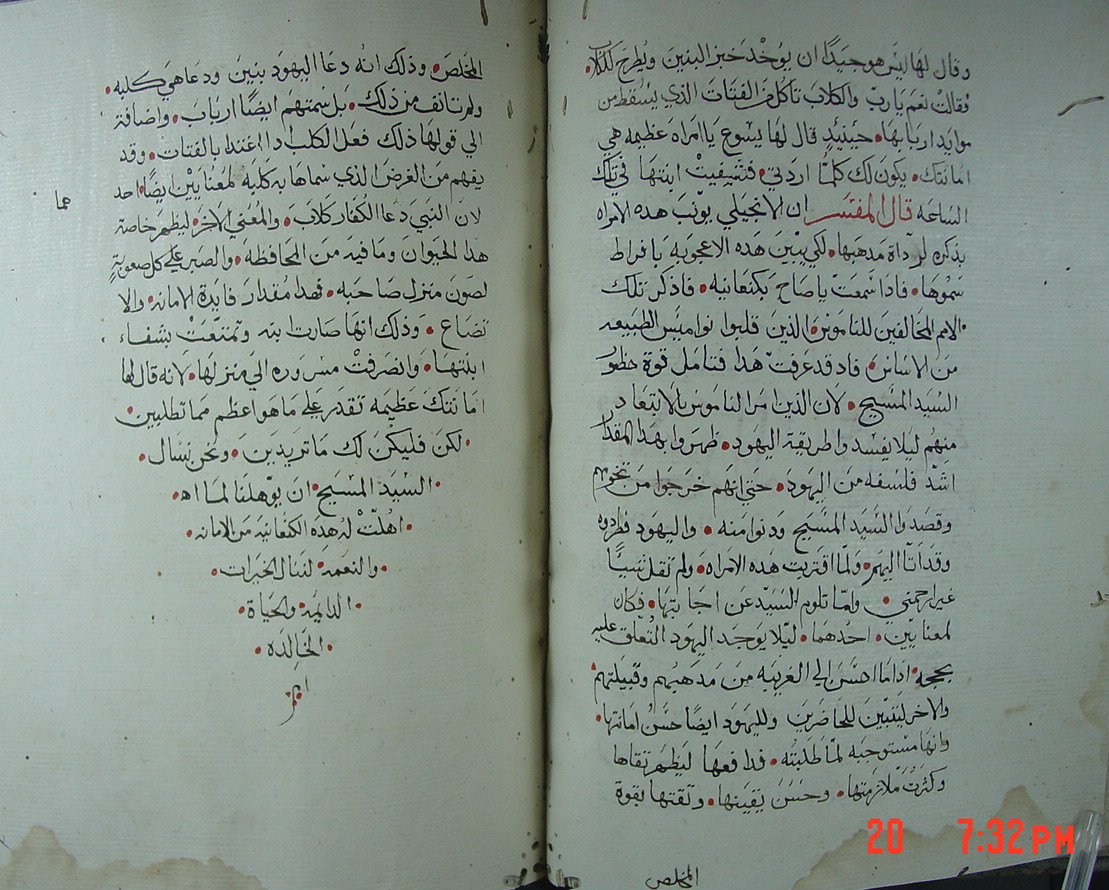 وقال لها ليس هو جيدًا ان يوخد خبز البنين ويُطرح للكلاب
فقالت نعم يا رب والكلاب تاكل من الفتات الذي يسقط من
موايد اربابها٠ حينيدٍ قال لها يسوع يا امراه عظيمه هي
امانتك٠ يكون لك كلما اردتي٠ فتشفيت ابنتها في تلك
الساعه قال المفسر ان الانجيلي يونب هده الامراه
بذكره لرداة مدهبها٠ لكي يبين هده الاعجوبه يا فراط
سموها٠ فادا سمعت يا صاح بكنعانيه٠ فادكر تلك
الامم المخالفين للناموس٠ الذين قلبوا نواميس الطبيعه
من الاساس٠ فاد قد عرفت هدا فتامل قوة حظور
السيد المسيح٠ لان الذين امر الناموس بالابتعاد
منهم ليلا يفسدوا طريقة اليهود٠ ظهروا بهدا المقدار
اشد فلسفه من اليهود٠ حتى انهم خرجوا من تخومهم
وقصدوا السيد المسيح ودنوا منه٠ واليهود فطردوه
وقد اتا اليهم٠ ولما اقتربت هده الامراه٠ ولم تقل شيًا
غير ارحمني٠ واما تلوم السيد عن اجابتها٠ فكان
لمعنايين٠ احدهما٠ ليلا يوجد اليهود التعلق عليه
بحجه٠ اداما احسن الى الغريبه من مدهبهم وقبيلتهم
والاخر ليتبين للحاضرين ولليهود ايضا حسن امانتها٠
وانها مستوجبه لما طلبته٠ فدافعها ليظهر تقاها
وكثرت ملازمتها٠ وحسن يقينها٠ وثقتها بقوة
المخلص
المخلص٠ وذلك انه دعا اليهود بنين ودعا هي كلبه٠
ولم تانف من ذلك٠ بل سمتهم ايضًا ارباب٠ واضافة
الى قولها ذلك فعل الكلب اد اغتدا بالفتات٠ وقد
يفهم من الغرض الذي سماها به كلبه لمعنايين ايضًا٠ احد
هما
لان النبي دعا الكفار كلاب٠ والمعنى الاخر٠ ليظهر خاصة
هدا الحيوان وما فيه من المحافظه٠ والصبر على كل صعوبة٠
لصون منزل صاحبه٠ فهدا مقدار فايدة الامانه٠ والا
تضاع٠ وذلك انها صارت ابنه وتمتعت بشفاء
ابنتها٠ وانصرفت مسروره الى منزلها٠ لانه قال لها
امانتك عظيمه تقدر على ما هو اعظم مما تطلبين٠
لكن فليكن لك ما تريدين٠ ونحن نسال٠
السيد المسيح٠ ان يوهلنا لما اه٠
اهلت له هده الكنعانيه من الامانه٠
والنعمه٠ لننال الخيرات٠
الدايمه٠ والحياة٠
الخالده٠
امين
20 7:32 PM